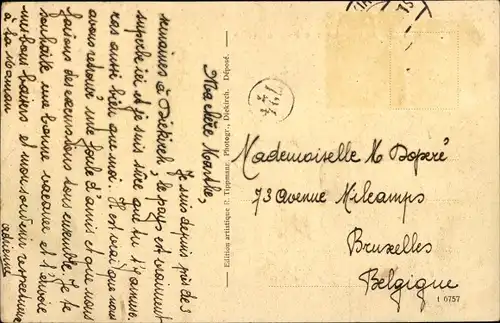 Ma chère Marthe,
Je suis depuis près de 3
semaines à Diekirch, le pays est vraiment
superbe ici et je suis sûre que tu t'y amuse
ras aussi bien que moi. Il est vrai que nous
avons retrouvé une foule d'amis et que nous
faisons des excursions tous ensemble. Je te
souhaite une bonne vacance et t'envoie
mes bons baisers et mon souvenir respectueux
à ta Maman
Adrienne
Edition artistique P. Tippmann, Photogr., Diekirch. Déposé.
Mademoiselle M Doperé
73 Avenue Milcamps
Bruxelles
Belgique
t 6757